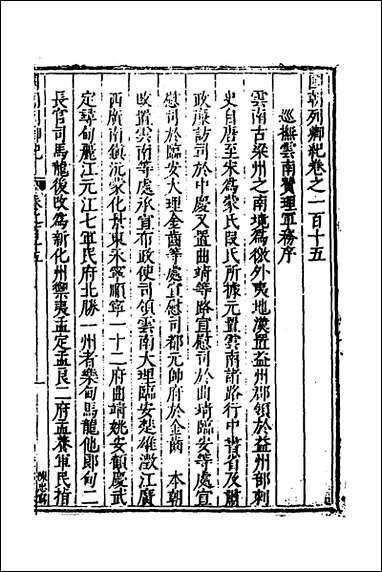 國朝列卿紀卷之一百十五
巡撫雲南贊理軍務序
雲南古梁州之南境爲徼外夷地漢置益州郡領於益州部刺
史自唐至宋爲蒙氏段氏所據元置雲南諸路行中書省及肅
政廉訪司於中慶又置曲靖等路宣慰司於曲靖臨安等處宣
慰司於臨安大理金齒等處宣慰司都元帥府於金齒 本朝
改置雲南等處承宣布政使司領雲南大理臨安楚雄澂江廣
西廣南鎮沅蒙化景東永寧順寧一十二府曲靖姚安鶴慶武
定尋甸麗江元江七軍民府北勝一州者樂甸馬龍他郎甸二
長官司馬龍後改爲新化州禦夷孟定孟艮二府孟養軍民指